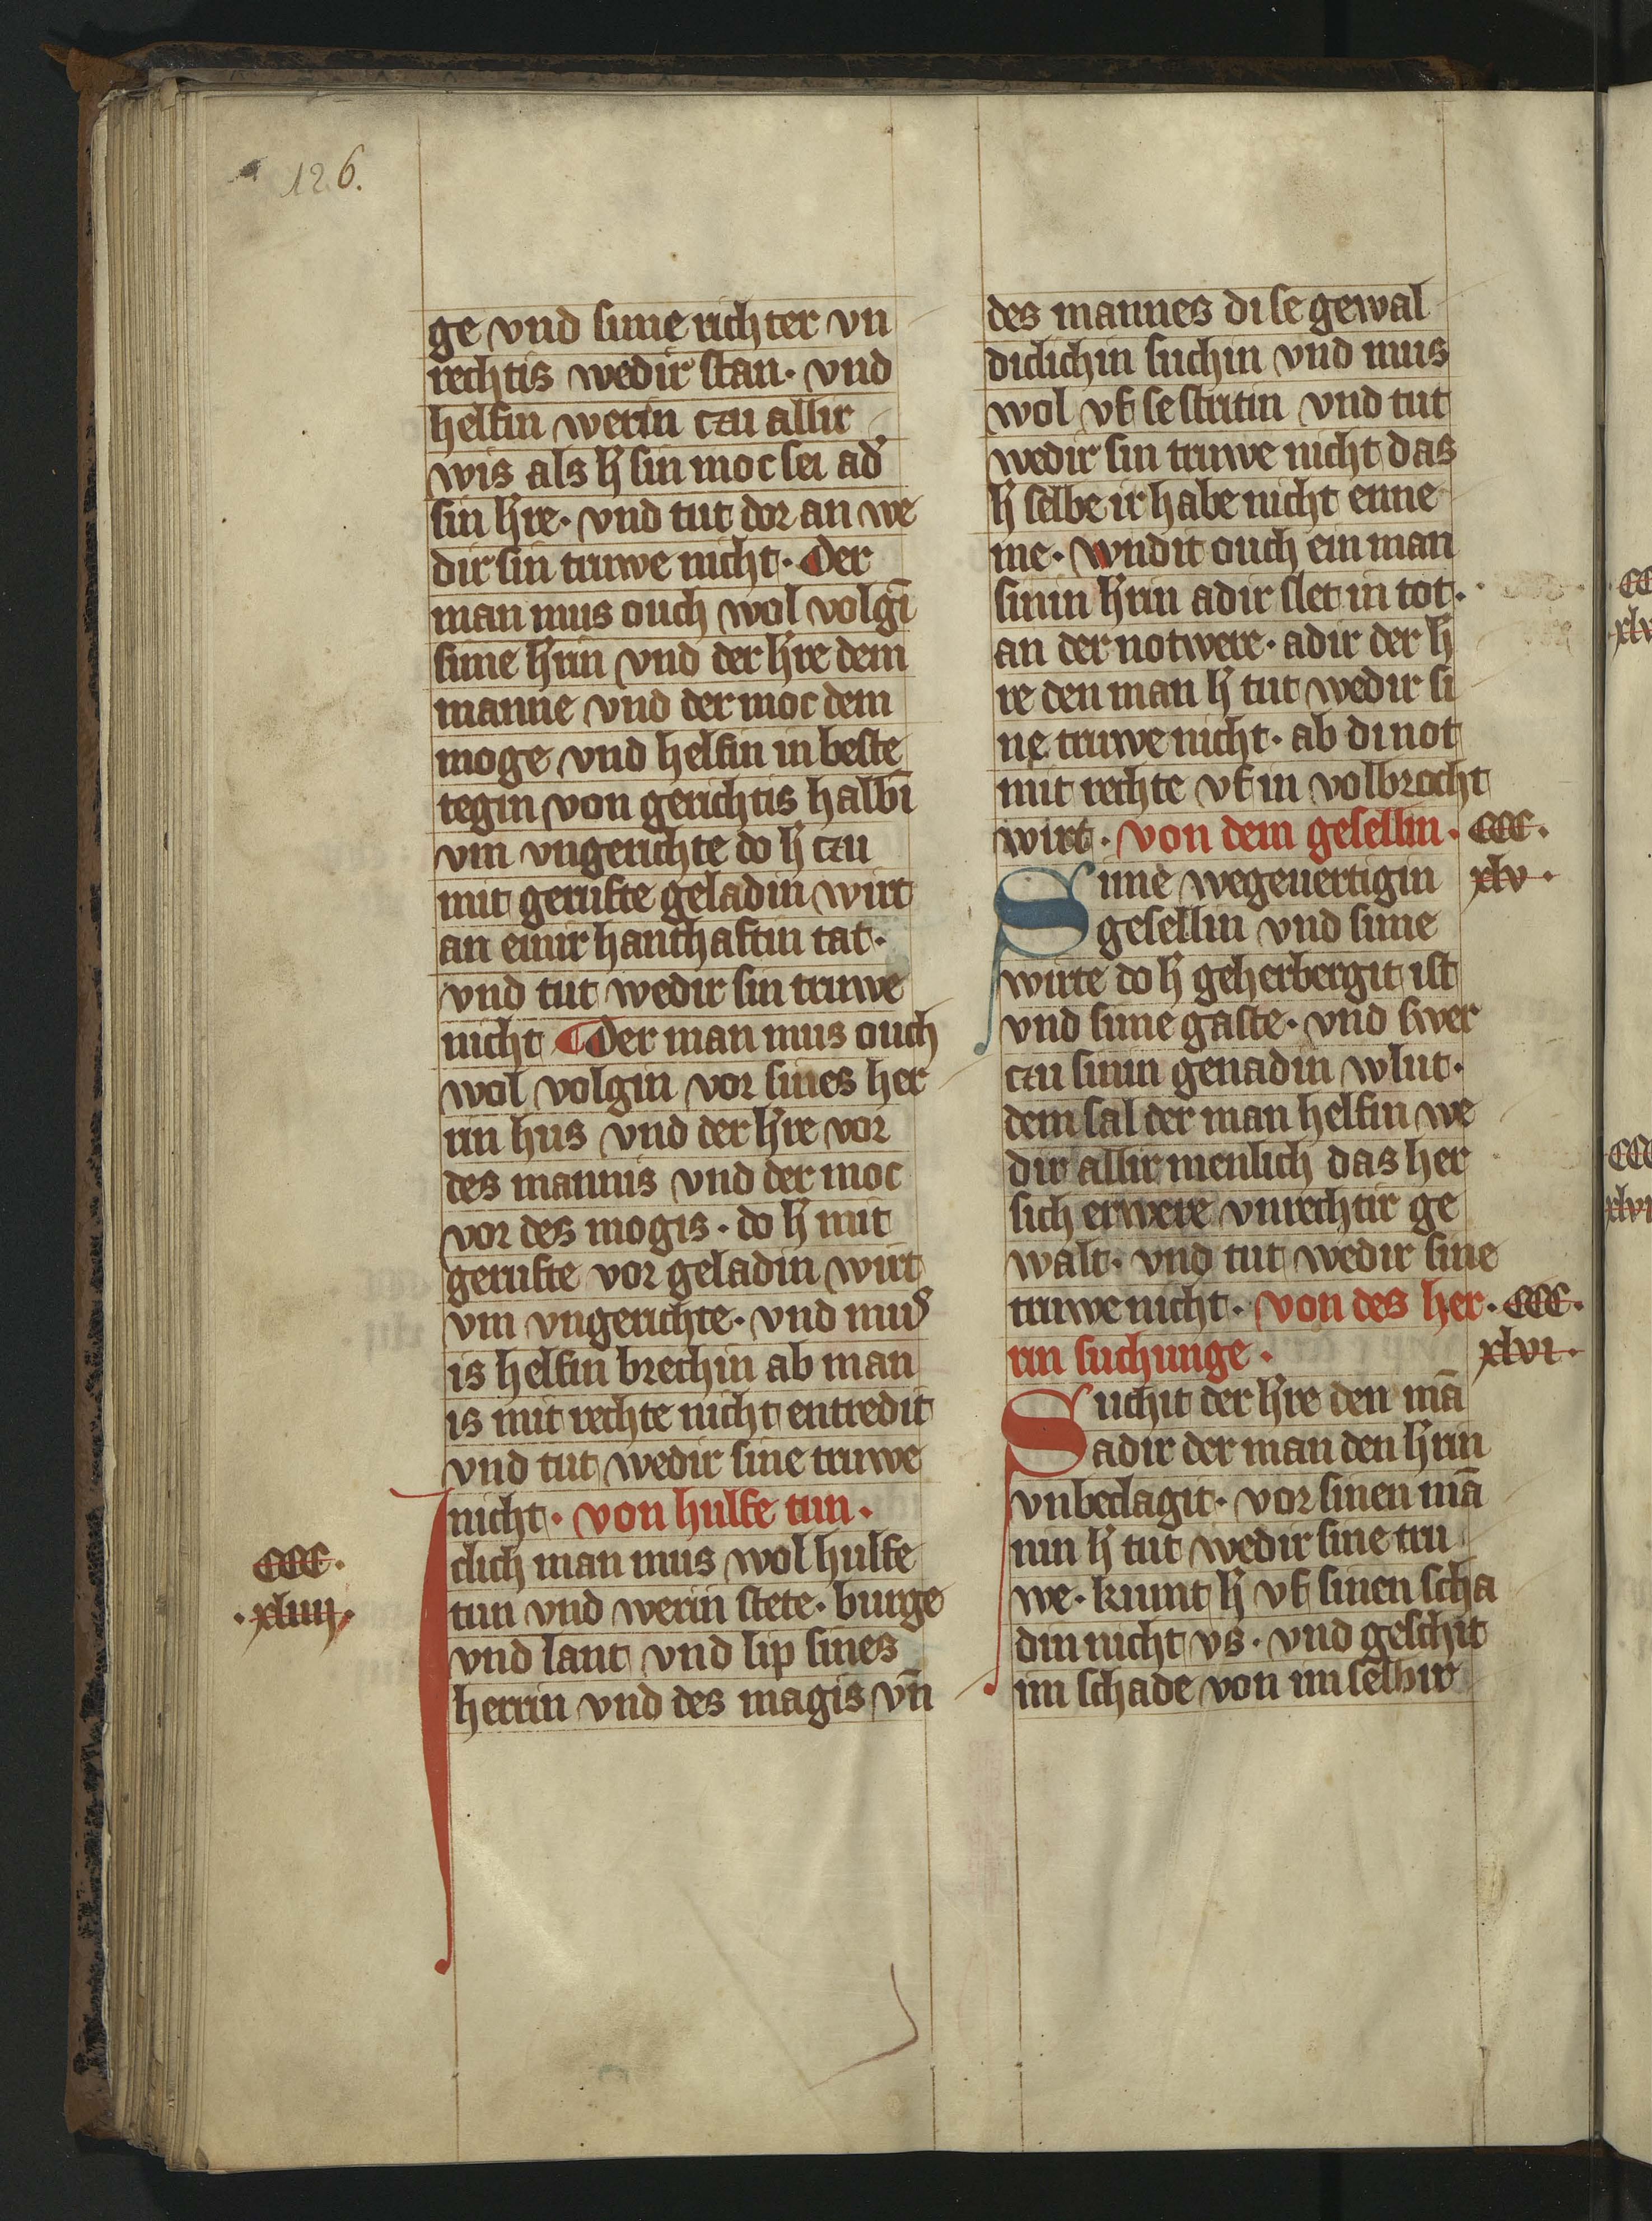 126.
ge vnd sime richter vn
rechtis wedir stan· vnd
helfin werin czu allir
wis als h̄ sin moc sei ad᷎
sin h̄re· vnd tut dor an we
dir sin truwe nicht· Der
man mus ouch wol volgī
sime h̄rin vnd der h̄re dem
manne vnd der moc dem
moge vnd helfin in beste
tegin von gerichtis halbī
vm vngerichte do h̄ czu
mit gerufte geladin wirt
an einir hanthaftin tat·
vnd tut wedir sin truwe
nicht ¶ Der man mus ouch
wol volgin vor sines her
rin hus vnd der h̄re vor
des mannis vnd der moc
vor des mogis· do h̄ mit
gerufte vor geladin wirt
vm vngerichte· vnd mus
is helfin brechin ab man
is mit rechte nicht entredit
vnd tut wedir sine truwe
nicht· von hulfe tun·
CCC·
·xliiii·
Iclich man mus wol hulfe
tun vnd werin stete· burge
vnd lant vnd lip sines
herrin vnd des magis vn̄
des mannes di se gewal
diclichin suchin vnd mus
wol vf se stritin vnd tut
wedir sin truwe nicht das
h̄ selbe ir habe nicht enne
me· Wndit ouch ein man
sinin h̄rin adir slet in tot·
an der notwere· adir der h̄
re den man h̄ tut wedir si
ne truwe nicht· ab di not
mit rechte vf in volbrocht
wirt· von dem gesellin· CCC·
xlv·
Sime wegeuertigin
gesellin vnd sime
wirte do h̄ geherbergit ist
vnd sime gaste· vnd swer
czu sinin genadin wlut·
dem sal der man helfin we
dir allir menlich das her
sich erwere vnrechtir ge
walt· vnd tut wedir sine
truwe nicht· von des her· CCC·
rin suchunge· xlvi·
Suchit der h̄re den mā
adir der man den h̄rin
vnbeclagit· vor sinen mā
nin h̄ tut wedir sine tru
we· kumt h̄ vf sinen scha
din nicht vs· vnd geschit
im schade von im selbir